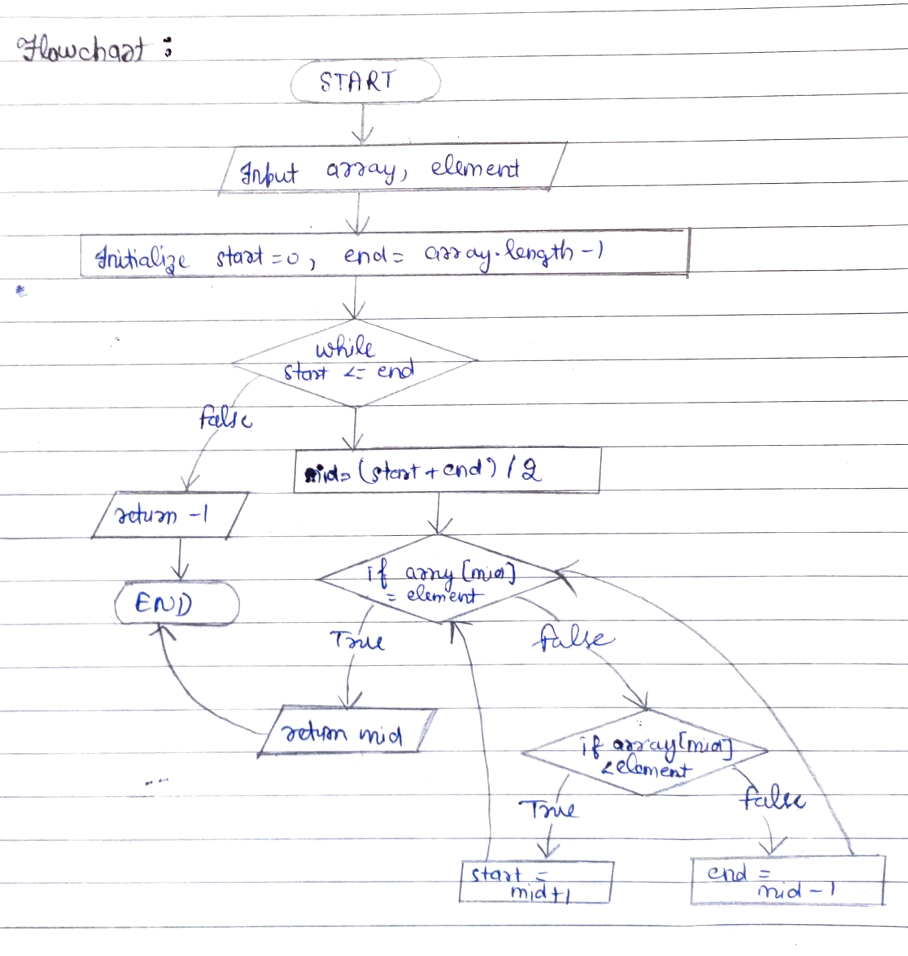 Flowchart :
START
Input array, element
Initialize start=0, end= array.length-1
while
start <= end
false
mid=(start+end)/2
return -1
if array[mid]
= element
END
True
false
return mid
if array[mid]
<element
True
false
start =
mid+1
end =
mid-1